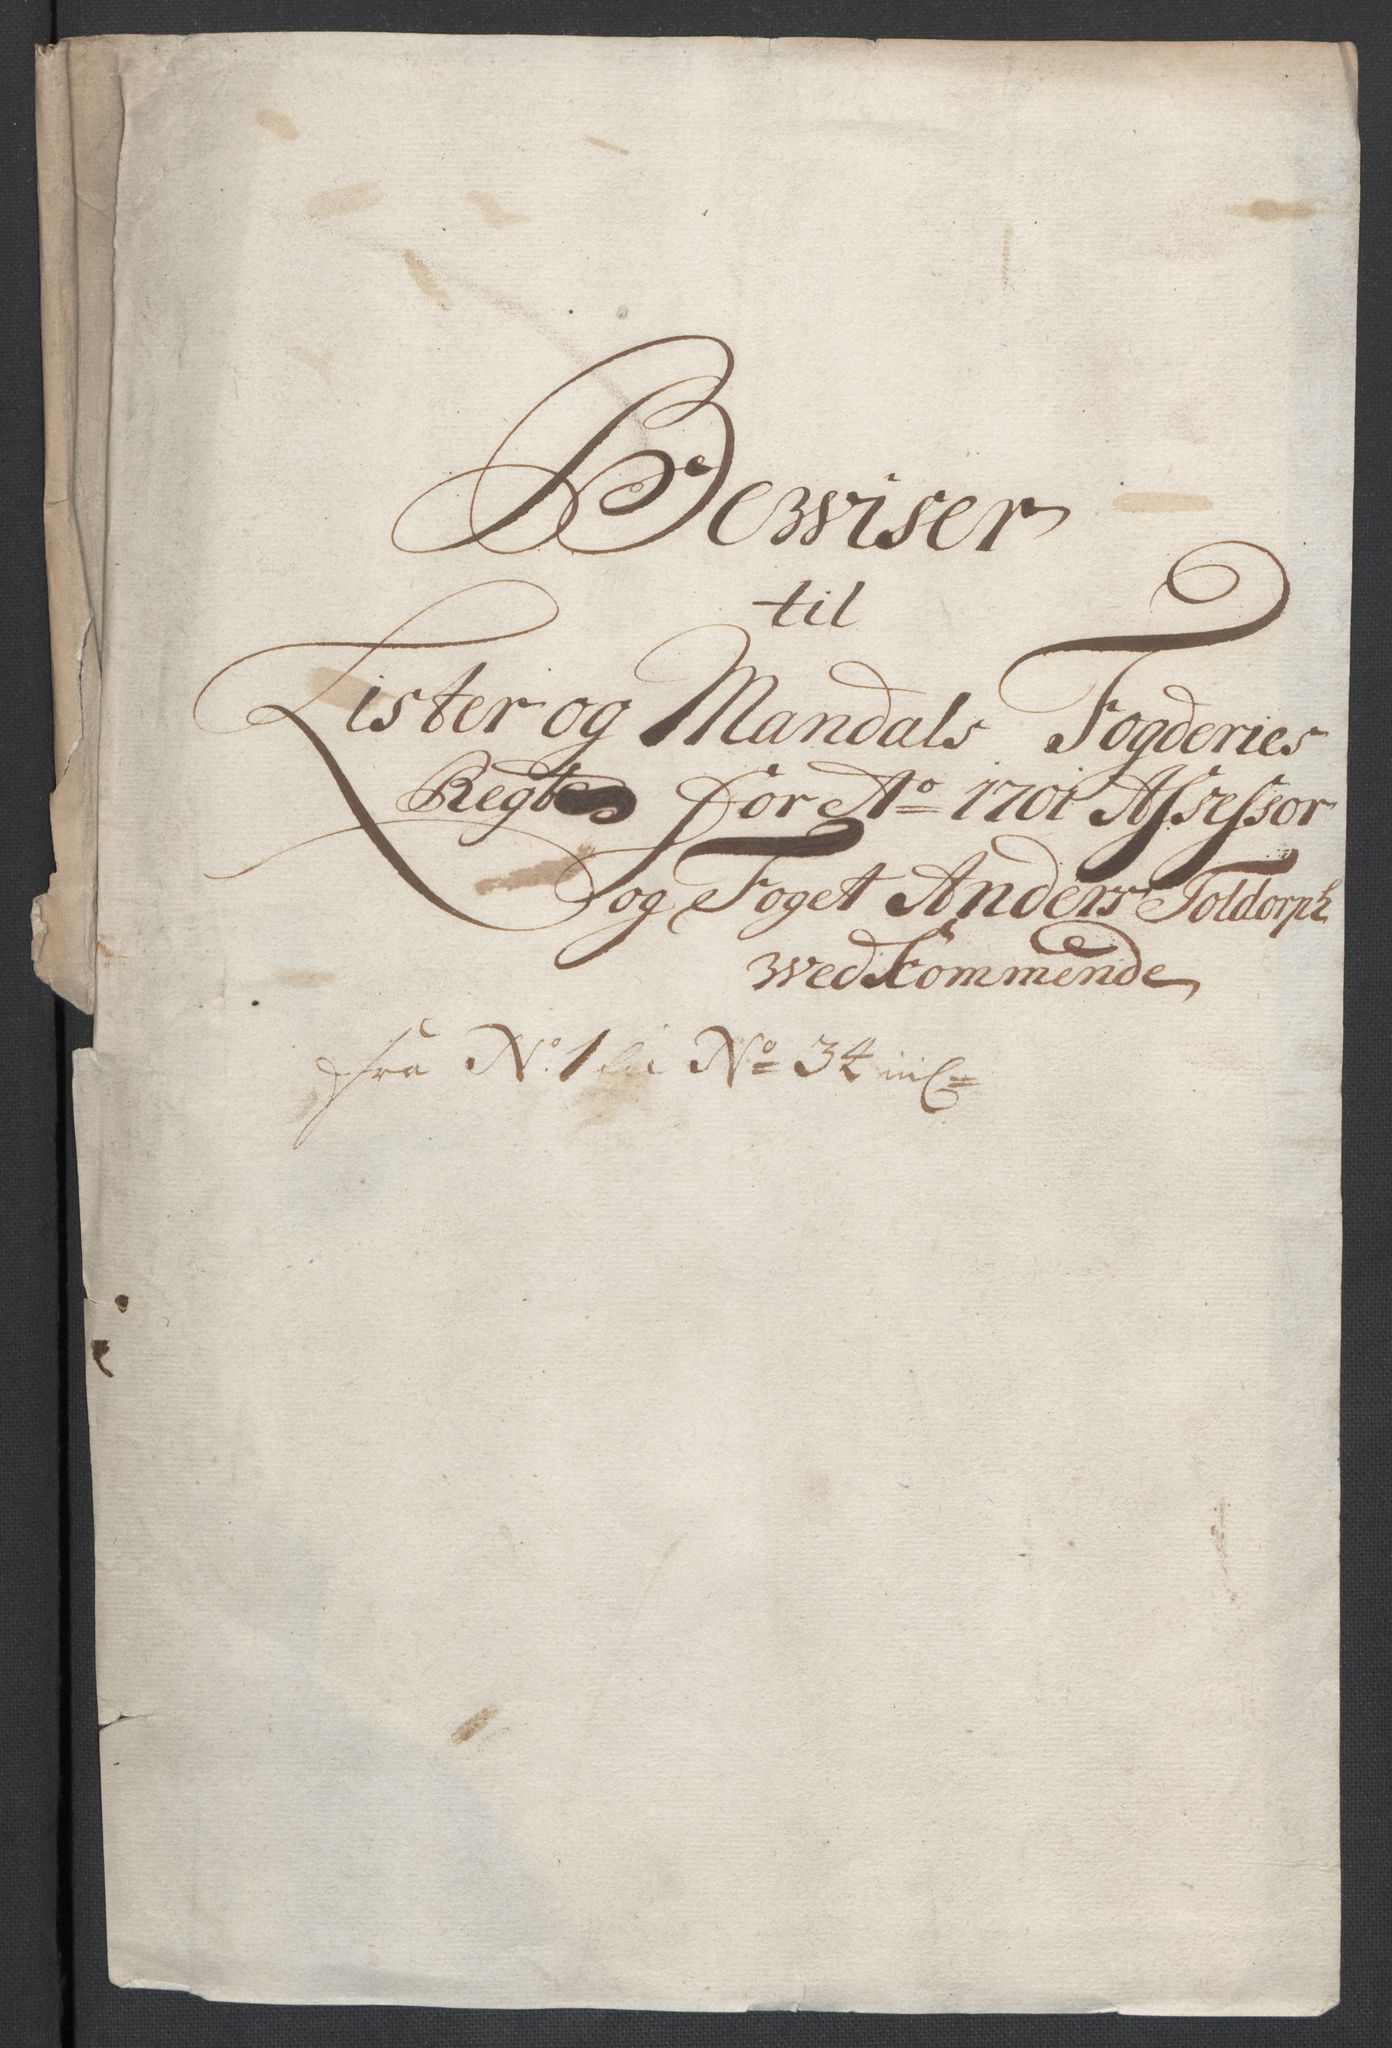 Bewiser
til
Lister og Mandals Fogderies
Regbs for Ao 1701 Assessor
og Foget Anders Toldorph
wedkommende
fra No. 1 til No 34 incl